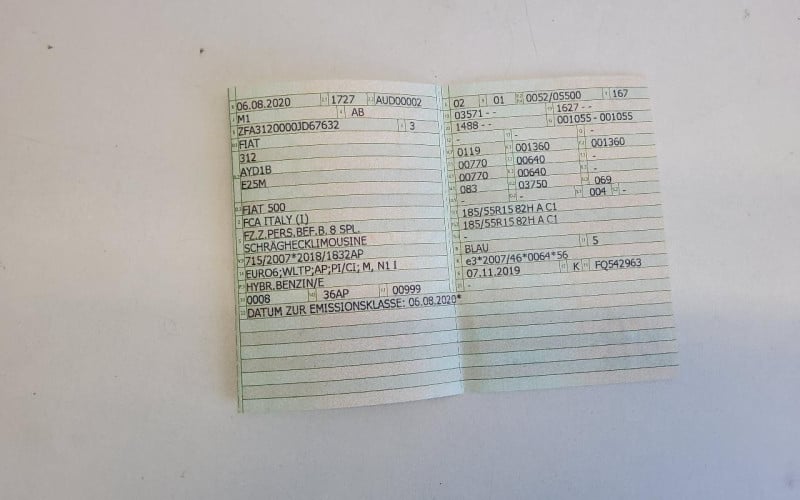 06.08.2020 1727 AUD00002
M1 AB
ZFA3120000JD67632 3
FIAT
312
AYD1B
E25M
FIAT 500
FCA ITALY (I)
FZ.Z.PERS.BEF.B. 8 SPL.
SCHRÄGHECKLIMOUSINE
715/2007*2018/1832AP
EURO6;WLTP;AP;PI/CI; M, N1 I
HYBR.BENZIN/E
0008 36AP 00999
DATUM ZUR EMISSIONSKLASSE: 06.08.2020*
02 01 0052/05500 167
03571 - - 1627 - -
1488 - - 001055 - 001055
- - -
0119 001360 001360
00770 00640 -
00770 00640 -
083 03750 069
- - 004 -
185/55R15 82H A C1
185/55R15 82H A C1
-
BLAU 5
e3*2007/46*0064*56
07.11.2019 K FQ542963
-